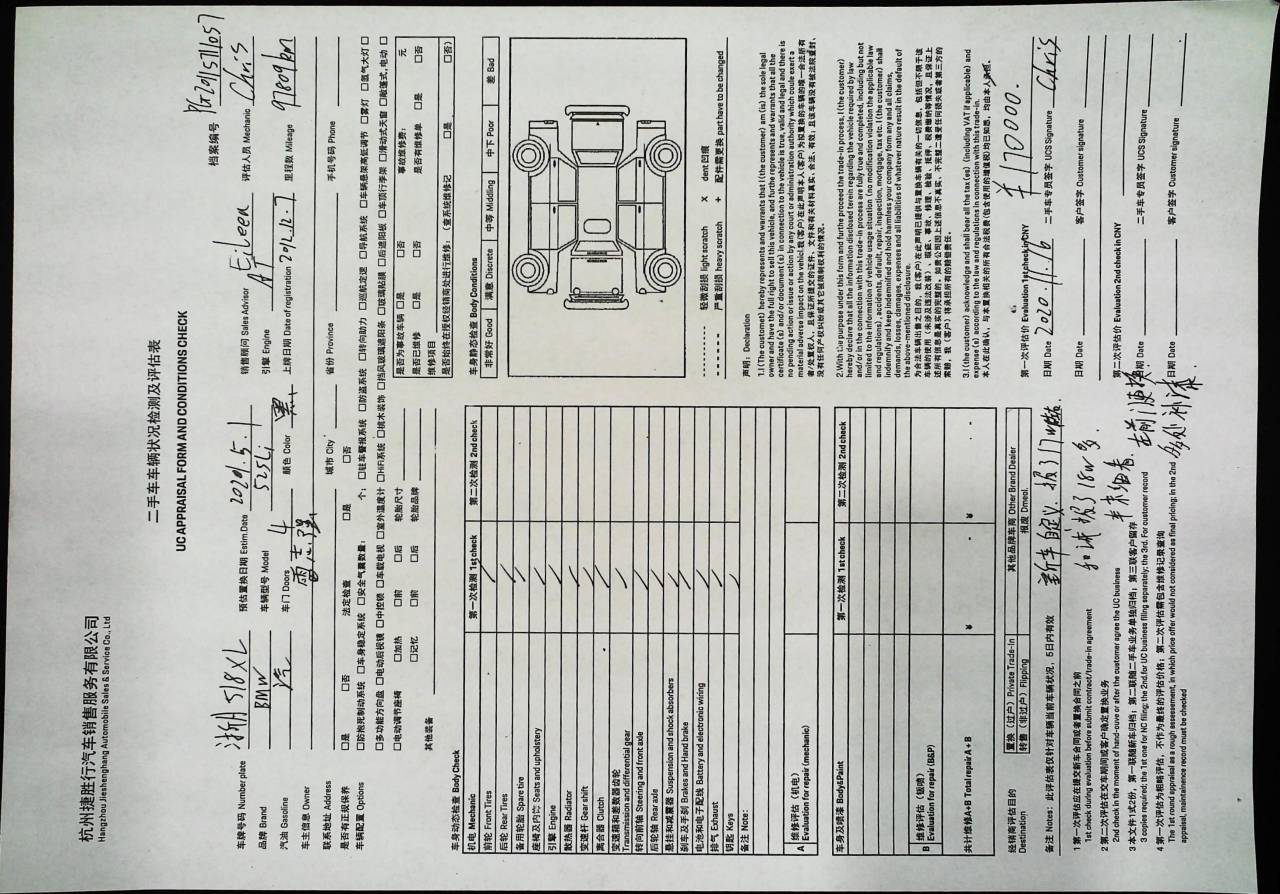 杭州捷胜行汽车销售服务有限公司
Hangzhou Jieshenghang Automobile Sales & Service Co., Ltd
二手车车辆状况检测及评估表
UC APPRAISAL FORM AND CONDITIONS CHECK
档案编号 PG2911571057
车牌号码 Number plate 浙A 518XL 预估置换日期 Estim.Date 2020.5.1 销售顾问 Sales Advisor Eileen 评估人员 Mechanic Chris
品牌 Brand BMW 车辆型号 Model 525Li 引擎 Engine AT 里程数 Mileage 97809km
汽油 Gasoline 汽 车门 Doors 4 颜色 Color 黑 上牌日期 Date of registration 2012.12.7
车主信息 Owner
联系地址 Address 城市 City 省份 Province 手机号码 Phone
是否有正规保养 □是 □否 法定检查 □是 □否
车辆配置 Options □防抱死制动系统 □车身稳定系统 □安全气囊数量: 个; □驻车警报系统 □防盗系统 □转向助力 □巡航定速 □导航系统 □车辆悬架高低调节 □雾灯 □氙气大灯
□多功能方向盘 □电动后视镜 □中控锁 □车载电视 □室外温度计 □HiFi系统 □桃木装饰 □挡风玻璃遮阳条 □玻璃贴膜 □后遮阳板 □车顶行李架 □滑动式天窗 □敞篷式,电动
□电动调节座椅 □加热 □前 □后 轮胎尺寸
□记忆 □前 □后 轮胎品牌
其他装备
是否为事故车辆 □是 □否 事故维修费: 元
是否已维修 □是 □否 是否有维修单 □是 □否
维修项目
是否始终在授权经销商处进行维修: (查系统维修记 □是 □否)
车身动态检查 Body Check
机电 Mechanic 第一次检测 1st check 第二次检测 2nd check
前轮 Front Tires
后轮 Rear Tires
备用轮胎 Spare tire
座椅及内饰 Seats and upholstery
引擎 Engine
散热器 Radiator
变速杆 Gear shift
离合器 Clutch
变速箱和差数器齿轮
Transmission and differential gear
转向前轴 Steering and front axle
后轮轴 Rear axle
悬挂和减震器 Suspension and shock absorbers
刹车及手刹 Brakes and Hand brake
电池和电子配线 Battery and electronic wiring
排气 Exhaust
钥匙 Keys
备注 Note:
A 维修评估 (机电)
Evaluation for repair (mechanic)
车身及喷漆 Body&Paint 第一次检测 1st check 第二次检测 2nd check
B 维修评估 (钣喷)
Evaluation for repair (B&P)
共计维修A+B Total repair A + B ¥ ¥
经销商评估目的
Destination
置换 (过户) Private Trade-In
转售 (非过户) Flipping
其他品牌车商 Other Brand Dealer
报废 Dmeol.
车身静态检查 Body Conditions
非常好 Good 满意 Discrete 中等 Middling 中下 Poor 差 Bad
轻微刮损 light scratch X dent 凹痕
严重刮损 heavy scratch + 配件需更换 part have to be changed
声明: Declaration
1.I (The customet) hereby represents and warrants that I (the customer) am (is) the sole legal
owner and have the full right to sell this vehicle, and furthe represents and warrants that all the
certificate (s) and/or document (s) in connection to the vehicle is true, valid and legal and there is
no pending action or issue or action by any court or administration authority which coule exert a
material adverse impact on the vehicle.我(客户)在此声明本人(客户)为拟置换的车辆的唯一合法所有
者/处置权人, 且保证所提交的证件、文件和有关材料真实、合法、有效; 且该车辆没有被法院查封,
没有任何产权纠纷或其它被限制权利的情况。
2.With the purpose under this form and furthe proceed the trade-in process, I (the customer)
hereby declare that all the information disclosed terein regarding the vehicle required by law
and/or in the connection with this trade-in process are fully true and completed, including but not
limited to the information of vehicle usage situation (no modification violation the applicable law
and regulations), accidents, default, repair, inspection, mortgage, tax etc. I (the customer) shall
indemnify and keep indemnified and hold harmless your company form any and all claims,
demands, losses, damages, expenses and all liabilities of whatever nature result in the default of
the above-mentioned disclosure.
为合法车辆出售之目的, 我(客户)在此声明已提供与置换车辆有关的一切信息, 包括但不限于该
车辆的使用 (未涉及违法改装)、瑕疵、事故、修理、检验、抵押、税费缴纳等情况, 且保证上
述所有信息是真实的完整的, 如贵公司因上述信息不真实、不完整二遭受任何损失或者第三方的
索赔, 我 (客户) 将承担所有的赔偿责任。
3.I (the customer) acknowledge and shall bear all the tax (es) (including VAT if applicable) and
expense (s) according to the law and regulations in connection with this trade-in.
本人在此确认, 与本置换相关的所有合法税费(包含使用的增值税)均已知悉, 均由本人承担。
第一次评估价 Evaluation 1st check in CNY ¥170000.
日期 Date 2020.11.16 二手车专员签字 UCS Signature Chris
日期 Date 客户签字 Customer signature
第二次评估价 Evaluation 2nd check in CNY
日期 Date 二手车专员签字 UCS Signature
日期 Date 客户签字 Customer signature
备注 Notes: 此评估表仅针对车辆当前车辆状况, 5日内有效
1 第一次评估应在提交新车合同或者置换合同之前
1st check during evaluation before submit contract/trade-in agreement
2 第二次评估在交车期间或客户确定置换业务
2nd check in the moment of hand-ouve or after the customer agree the UC business
3 本文件1式2份, 第一联随新车归档; 第二联随二手车业务单独归档; 第三联客户留存
3 copies required; the 1st one for NC filing; the 2nd.for UC business filing separately; the 3rd. For customer record
4 第一次评估为粗略评估, 不作为最终的评估价格; 第二次评估需包含维修记录查询
The 1st round appraisal as a rough assessment, in which price offer would not considered as final pricing; in the 2nd
appraisal, maintainenece record must be checked
和诚报了18w多
多处补漆